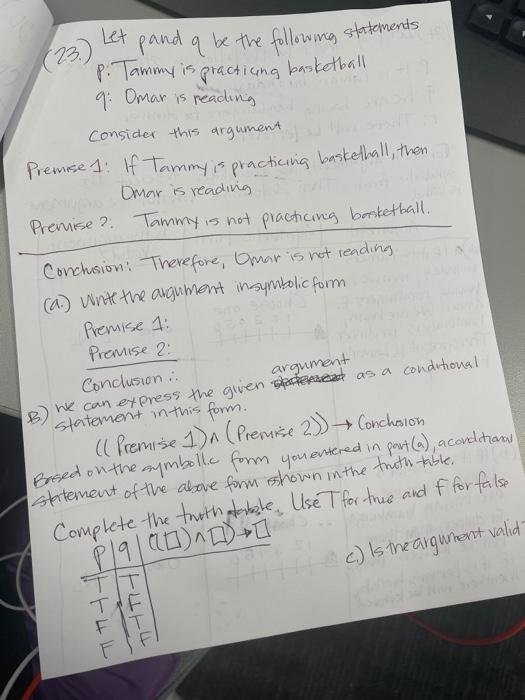 (23.) Let p and q be the following statements
p: Tammy is practicing basketball
q: Omar is reading
Consider this argument
Premise 1: If Tammy is practicing basketball, then
Omar is reading
Premise 2: Tammy is not practicing basketball.
Conclusion: Therefore, Omar is not reading
(a) Write the argument in symbolic form
Premise 1:
Premise 2:
Conclusion ∴
B) We can express the given argument as a conditional
statement in this form.
((Premise 1) ∧ (Premise 2)) → Conclusion
Based on the symbolic form you entered in part (a), a conditional
statement of the above form shown in the truth table.
Complete the truth table. Use T for true and F for false
p | q | ((□) ∧ □) → □
T | T
T | F
F | T
F | F
c) Is the argument valid?